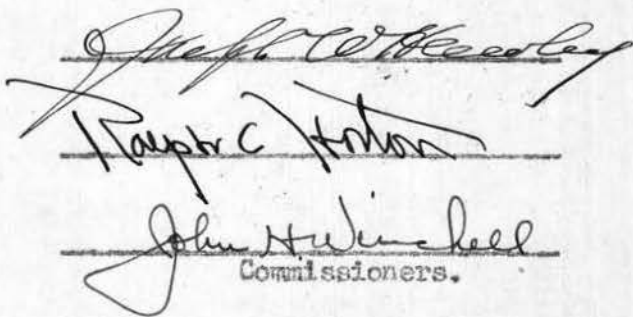 Joseph W Hawley
Ralph C Horton
John H Winchell
Commissioners.